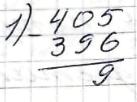 1) - 405
396
9